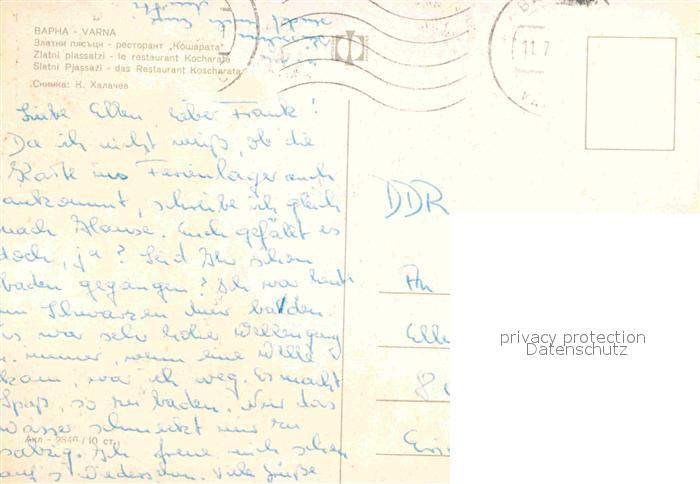 ВАРНА - VARNA
Златни пясъци - ресторант „Кошарата“
Zlatni plassatzi - le restaurant Kocharata
Slatni Pjassazi - das Restaurant Koscharata
Снимка: К. Халачев
11.7
Liebe Ellen, lieber Frank!
Da ich nicht weiß, ob die
Karte ins Ferienlager auch
ankommt, schreibe ich gleich
nach Hause. Euch gefällt es
doch, ja? Seid Ihr schon
baden gegangen? Ich war heute
im Schwarzen Meer baden.
Es war sehr hoher Wellengang
immer, wenn eine Welle
kam, war ich weg. Es macht
Spaß, so zu baden. Nur das
Wasser schmeckt mir zu
salzig. Ich freue mich schon
auf's Wiedersehn. Viele Grüße
Акл - 2846 / 10 ст.
DDR
An
Elle
8
privacy protection
Datenschutz